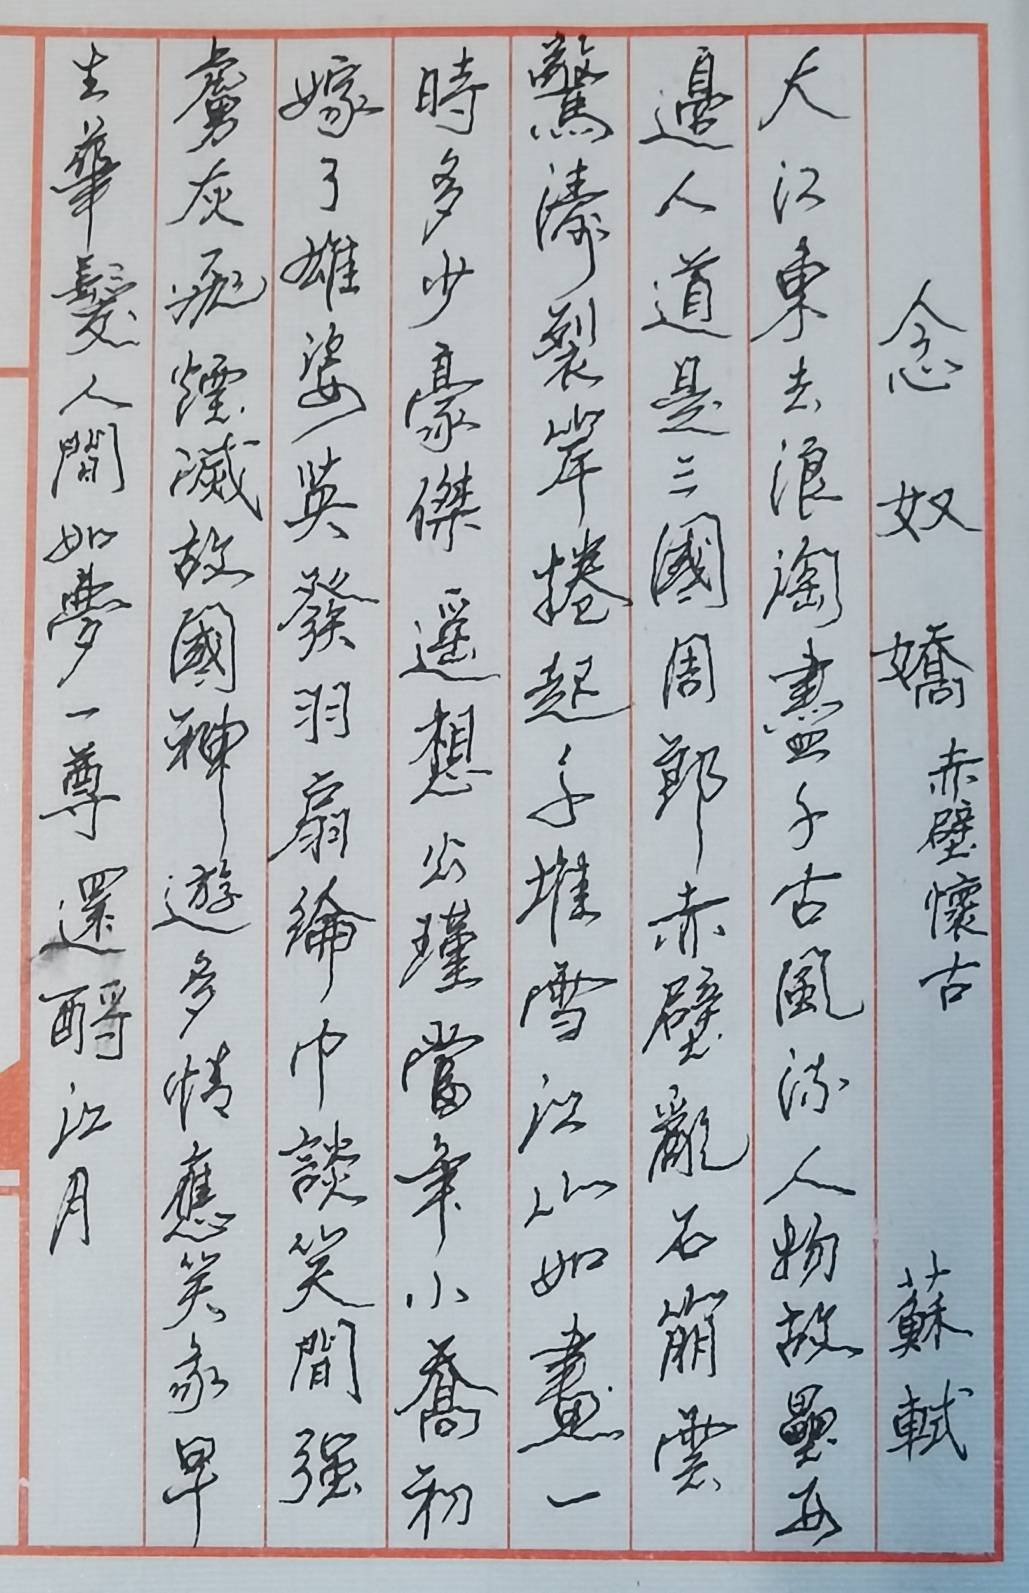 念奴嬌 赤壁懷古 蘇軾
大江東去浪淘盡千古風流人物故壘西
邊人道是三國周郎赤壁亂石崩雲
驚濤裂岸捲起千堆雪江山如畫一
時多少豪傑遥想公瑾當年小喬初
嫁了雄姿英發羽扇綸巾談笑間强
虜灰飛煙滅故國神遊多情應笑我早
生華髮人間如夢一尊還酹江月